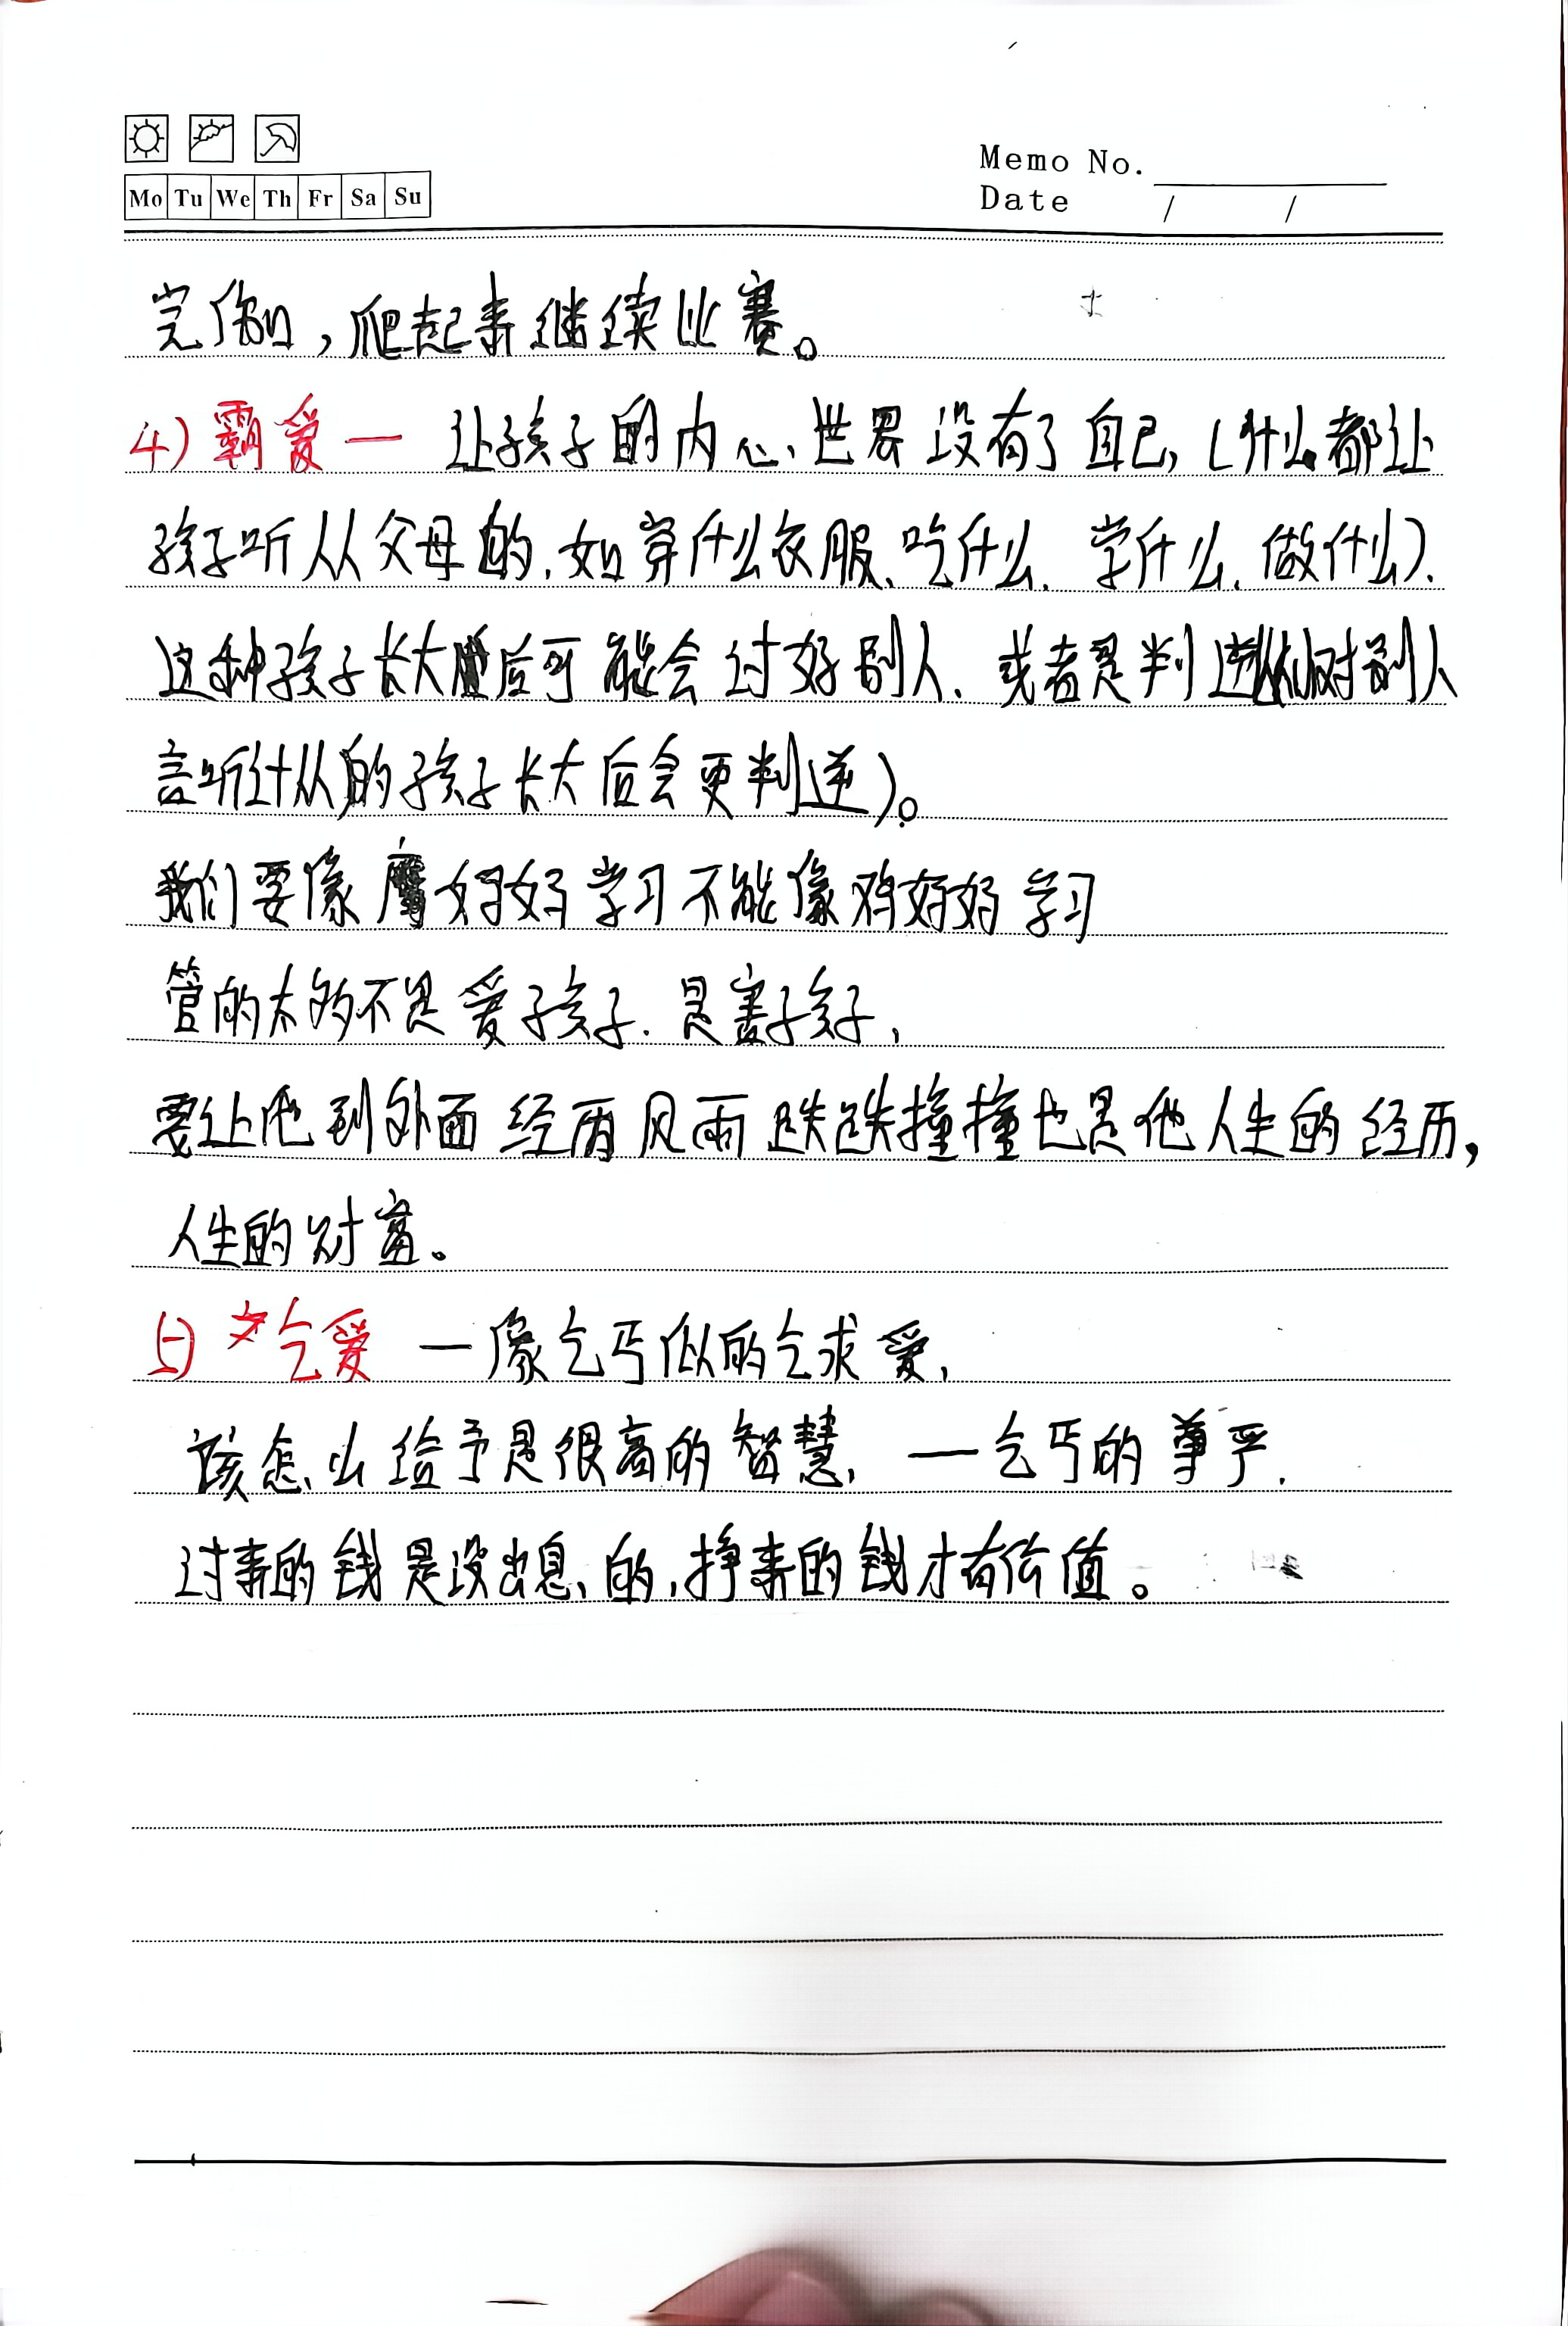 Mo Tu We Th Fr Sa Su
Memo No.
Date / /
完伤口,爬起来继续比赛。
4)霸爱— 让孩子的内心世界没有了自己,(什么都让
孩子听从父母的,如穿什么衣服、吃什么、学什么、做什么).
这种孩子长大后可能会讨好别人、或者是判逆(对别人
言听计从的孩子长大后会更判逆)。
我们要像鹰妈好好学习不能像鸡妈好好学习
管的太多不是爱孩子.是害孩子,
要让他到外面经历风雨跌跌撞撞也是他人生的经历,
人生的财富。
5)乞爱 —像乞丐似的乞求爱,
该怎么给予是很高的智慧,—乞丐的尊严.
讨来的钱是没出息的,挣来的钱才有价值。